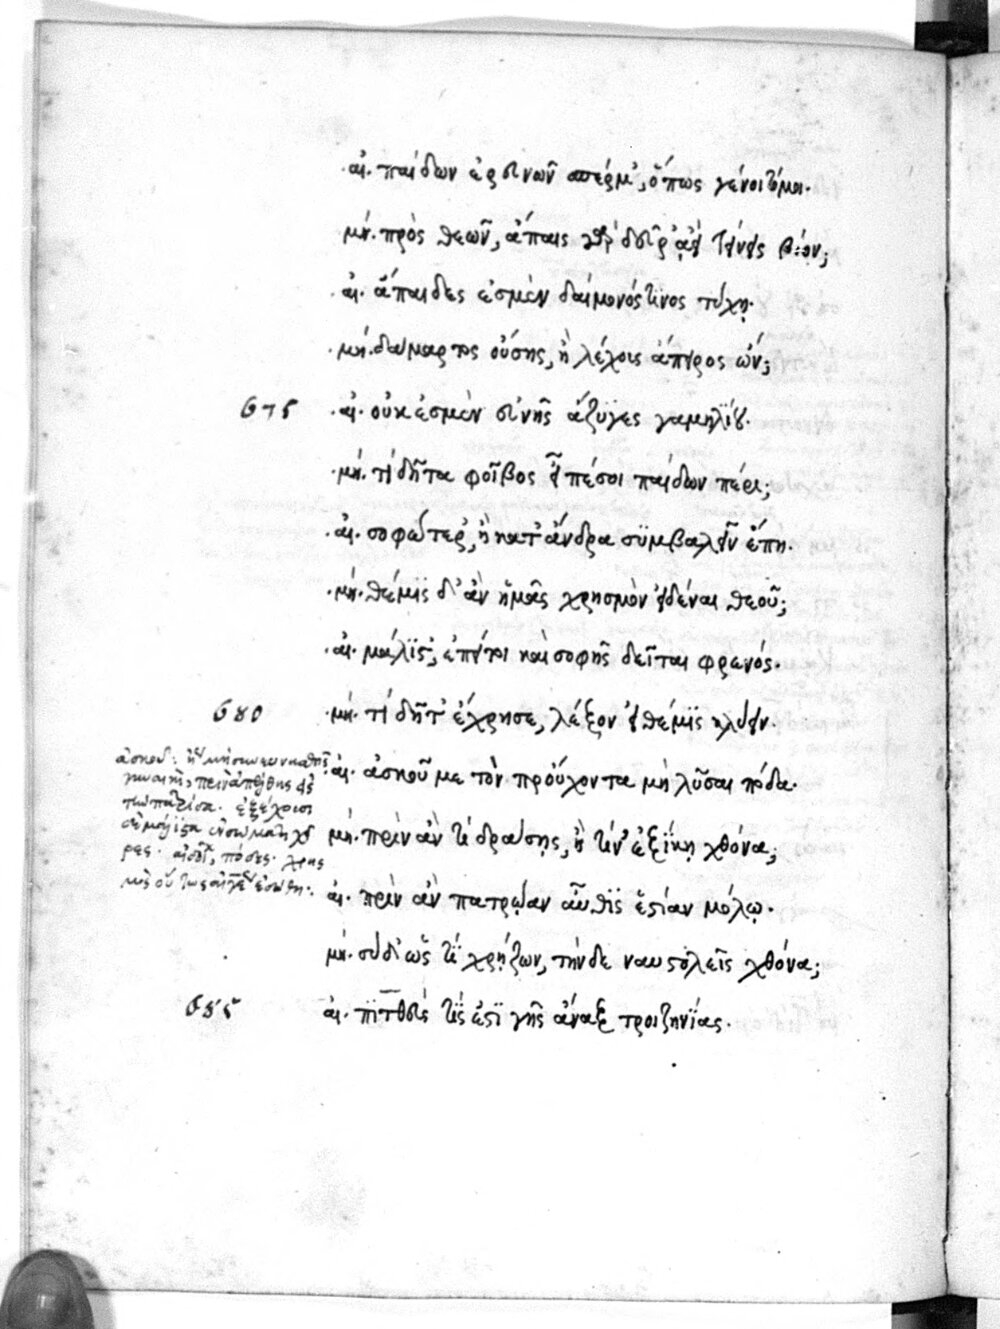 αι. παίδων ἐρευνῶν σπέρμ', ὅπως γένοιτό μοι.
μή. πρὸς θεῶν, ἄπαις γὰρ δεῦρ' ἀεὶ τείνεις βίον;
αι. ἄπαιδές ἐσμεν δαίμονός τινος τύχῃ.
μή. δάμαρτος οὔσης, ἢ λέχους ἄπειρος ὤν;
675 αι. οὐκ ἐσμὲν εὐνῆς ἄζυγες γαμηλίου.
μή. τί δῆτα φοῖβος εἶπέ σοι παίδων πέρι;
αι. σοφώτερ', ἢ κατ' ἄνδρα συμβαλεῖν ἔπη.
μή. θέμις δ' ἂν ἡμᾶς χρησμὸν εἰδέναι θεοῦ;
αι. μάλιστ', ἐπεί τοι καὶ σοφῆς δεῖται φρενός.
680 μή. τί δῆτ' ἔχρησε, λέξον εἰ θέμις κλύειν.
αι. ἀσκοῦ με τὸν προὔχοντα μὴ λῦσαι πόδα.
μή. πρὶν ἂν τί δράσῃς, ἢ τίν' ἐξίκῃ χθόνα;
αι. πρὶν ἂν πατρῴαν αὖθις ἑστίαν μόλω.
μή. σὺ δ' ὡς τί χρῄζων, τήνδε ναυστολεῖς χθόνα;
685 αι. πιτθεύς τίς ἐστι γῆς ἄναξ τροιζηνίας.